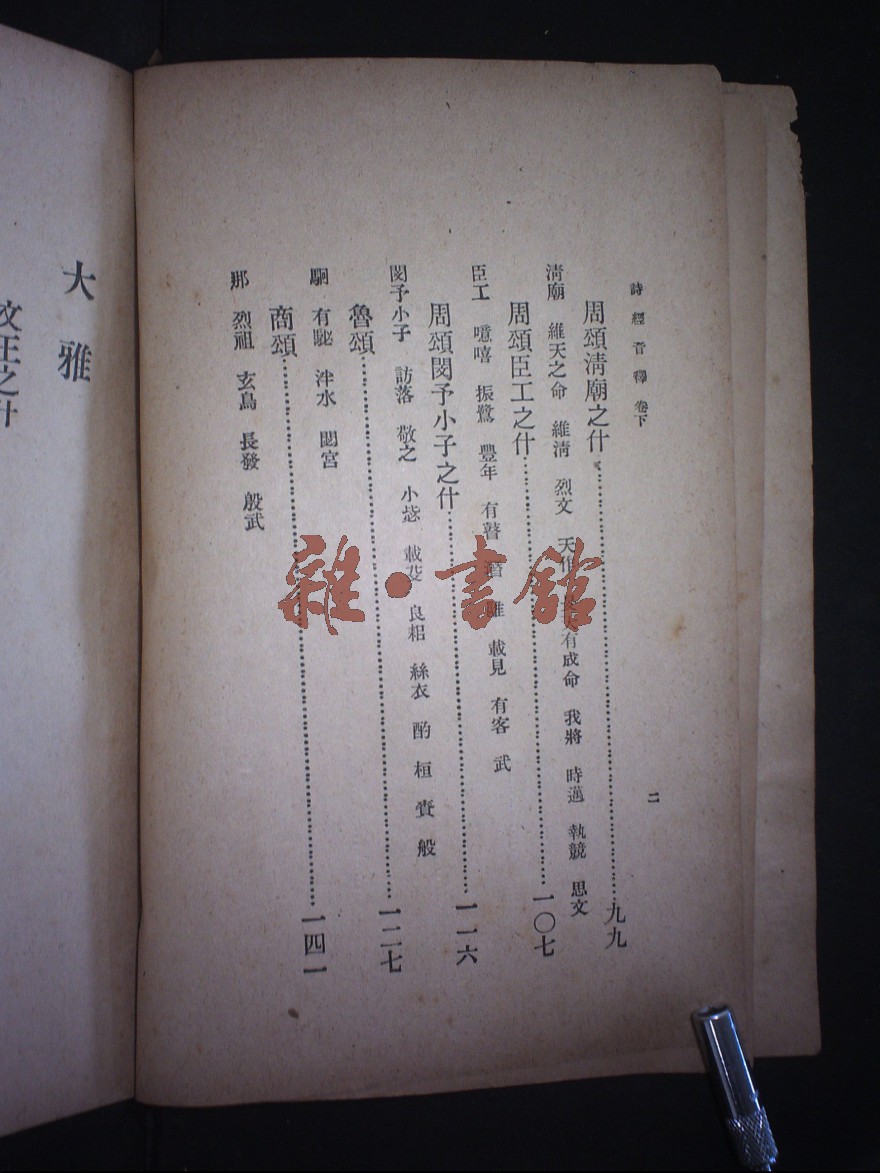 詩經音釋 卷下
二
周頌淸廟之什……九九
淸廟 維天之命 維淸 烈文 天作 有成命 我將 時邁 執競 思文
周頌臣工之什……一〇七
臣工 噫嘻 振鷺 豐年 有瞽 潛 雝 載見 有客 武
周頌閔予小子之什……一一六
閔予小子 訪落 敬之 小毖 載芟 良耜 絲衣 酌 桓 賚 般
魯頌……一二七
駉 有駜 泮水 閟宮
商頌……一四一
那 烈祖 玄鳥 長發 殷武
大雅
文王之什
雜·書館